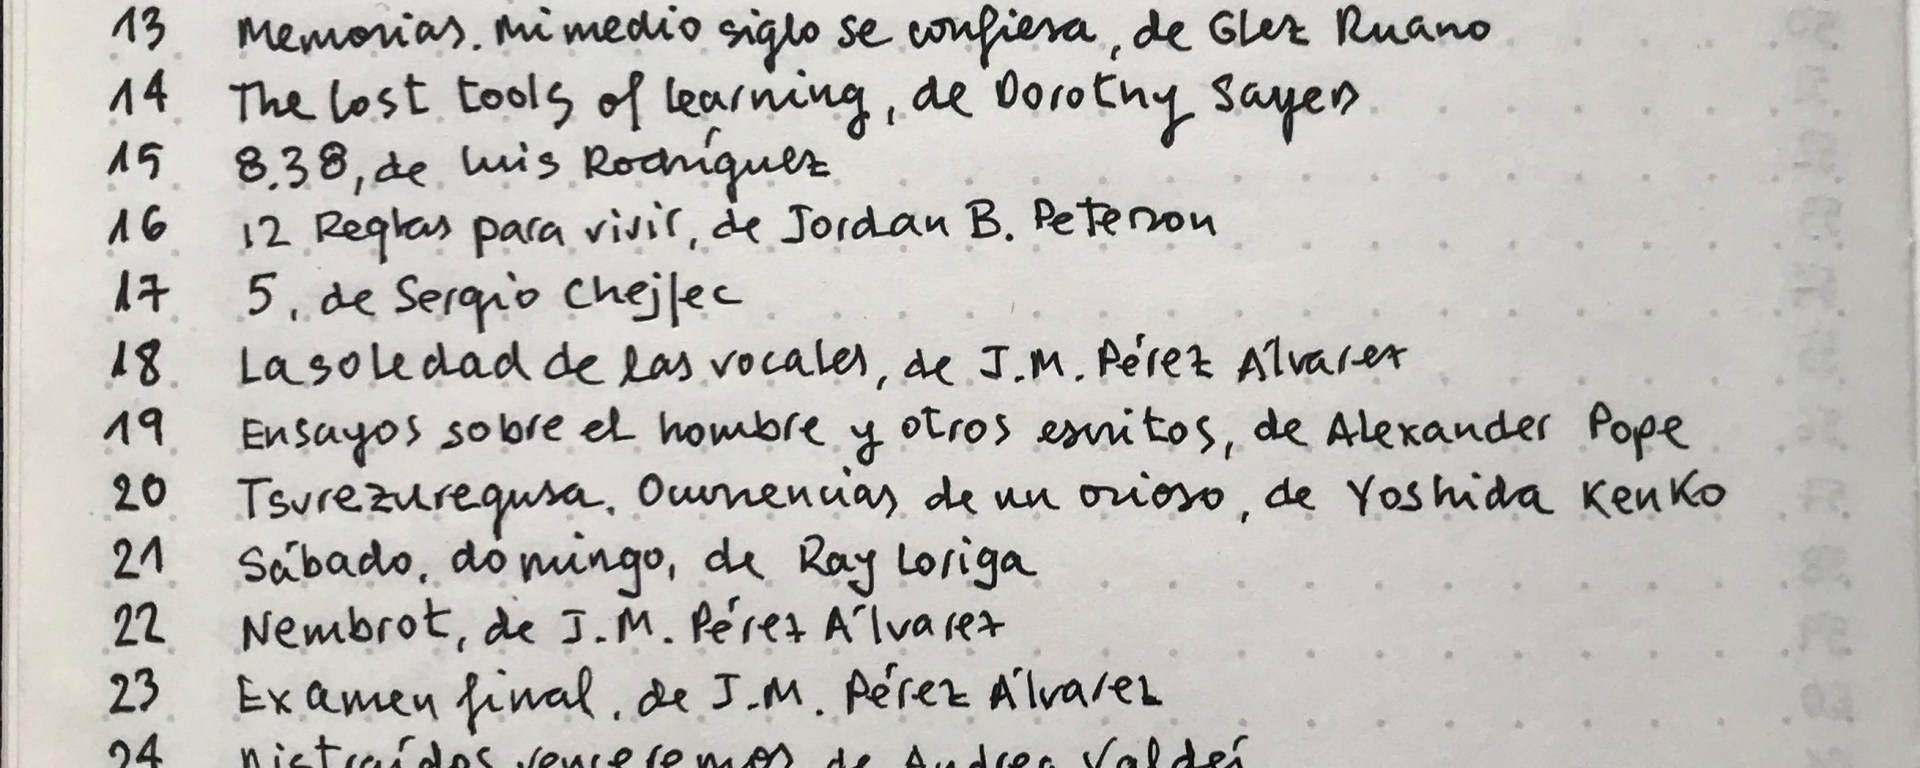 13 Memorias. Mi medio siglo se confiesa, de Glez Ruano
14 The lost tools of learning, de Dorothy Sayers
15 8.38, de Luis Rodríguez
16 12 Reglas para vivir, de Jordan B. Peterson
17 5, de Sergio Chejfec
18 La soledad de las vocales, de J.M. Pérez Álvarez
19 Ensayos sobre el hombre y otros escritos, de Alexander Pope
20 Tsurezuregusa. Ocurrencias de un ocioso, de Yoshida Kenko
21 Sábado, domingo, de Ray Loriga
22 Nembrot, de J.M. Pérez Álvarez
23 Examen final, de J.M. Pérez Álvarez
24 Distraídos venceremos, de Andrea Valdés